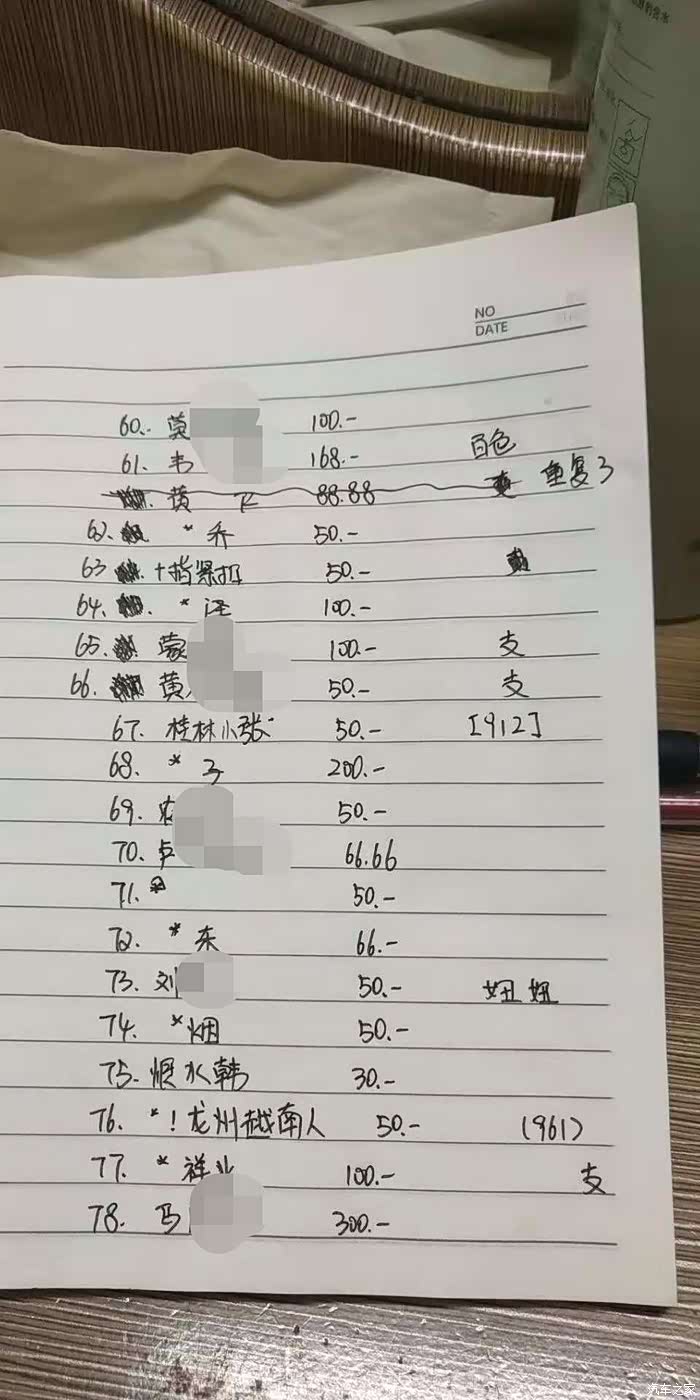 NO
DATE
60. 莫 100.-
61. 韦 168.- 百色
黄 88.88 重复了
62. *乔 50.-
63. 50.-
64. * 100.-
65. 蒙 100.- 支
66. 黄 50.- 支
67. 桂林小张 50.- [912]
68. *子 200.-
69. 农 50.-
70. 卢 66.66
71. 50.-
72. *东 66.-
73. 刘 50.- 妞妞
74. *烟 50.-
75. 恨水韩 30.-
76. *！龙州越南人 50.- (961)
77. *祥 100.- 支
78. 马 300.-
汽车之家